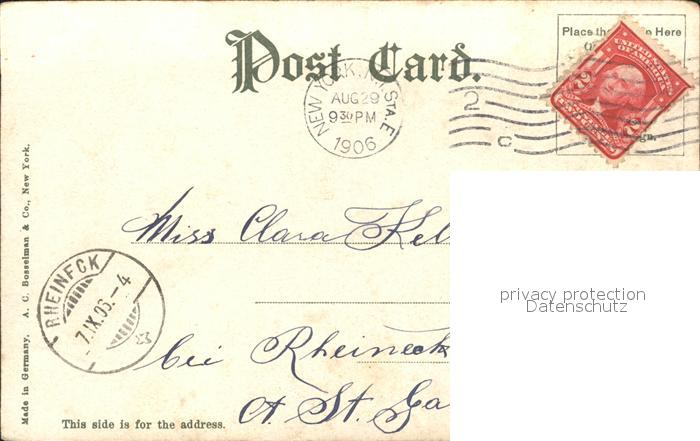 Post Card.
Place the Here
NEW YORK, N.Y. STA. E
AUG 29
9 30 PM
1906
2
C
UNITED STATES
OF AMERICA
Miss Clara Kel
privacy protection
Datenschutz
RHEINECK
7.IX.06.-4
bei Rheineck
Ct. St. Ga
This side is for the address.
Made in Germany. A. C. Bosselman & Co., New York.